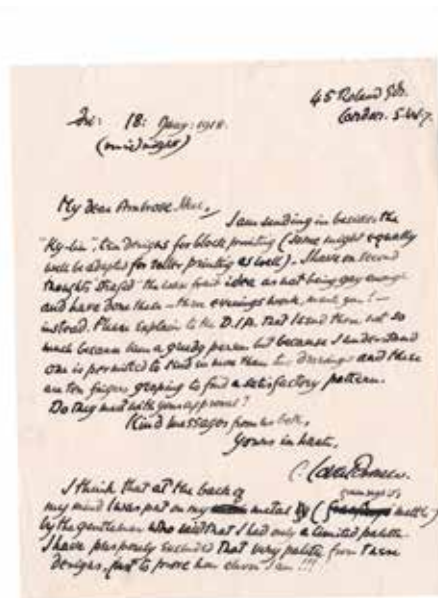 45 Roland Gds.
London. S.W.7.
Fri: 18: Jany: 1918.
(midnight)
My dear Ambrose
I am sending in besides the
"Ky-lin". ten designs for block printing (some might equally
well be adapted for roller printing as well). I have on second
thoughts the idea as not being gay enough
and have done these – three evenings work, mark you! –
instead. Please explain to the D.I.A. that I send them not so
much because I am a greedy person but because I understand
one is permitted to send in more than drawings and these
are ten fingers groping to find a satisfactory pattern.
Do they meet with your approval?
Kind messages from us both,
Yours in haste,
C.
I think that at the back of
my mind I was put on my metal by (
by the gentleman who said that I had only a limited palette.
I have purposely excluded that very palette from these
designs, just to prove how clever I am!!!